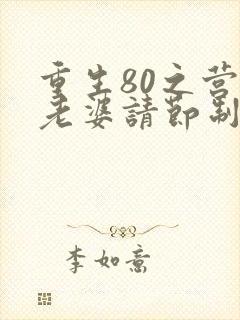 重生80之营
老婆請節制
李如意